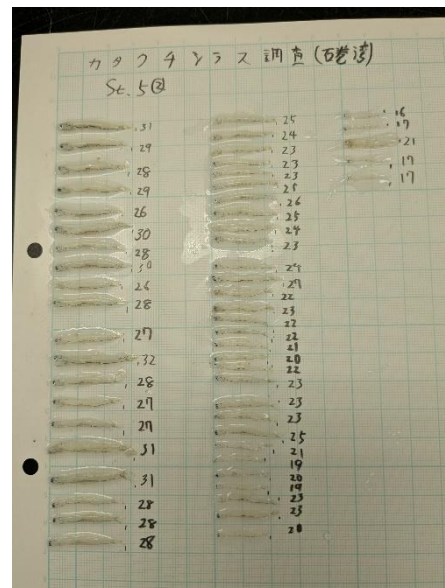 カタクチシラス調査(石巻湾)
St. 5②
31
29
28
29
26
30
28
30
26
28
27
32
28
27
27
31
31
28
28
28
25
24
23
23
23
25
26
25
24
23
24
27
22
23
22
22
21
20
22
23
23
23
25
21
19
20
19
23
23
20
16
17
21
17
17